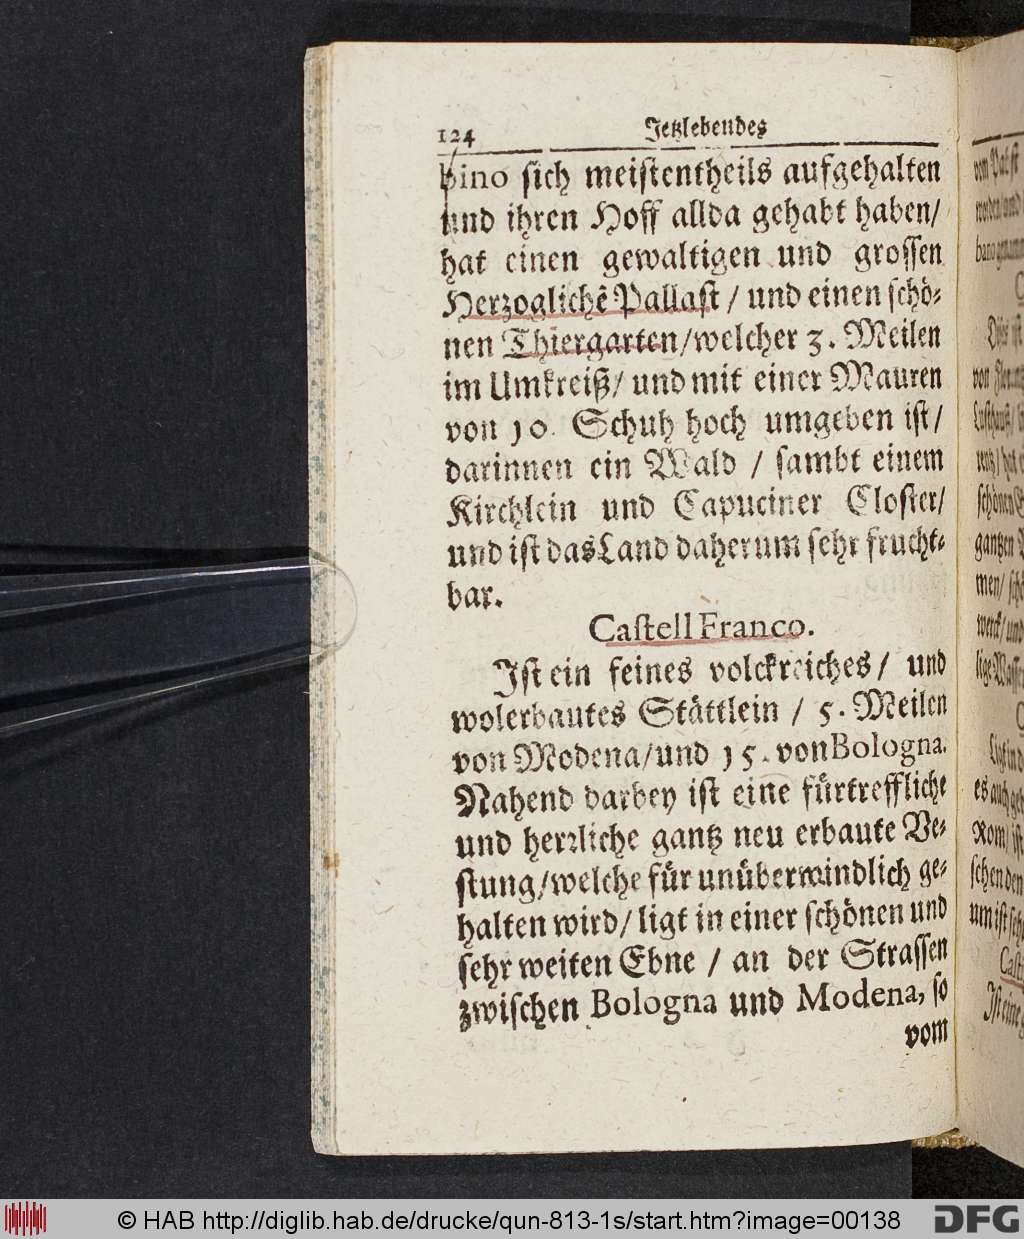 124 Jetzlebendes
bino sich meistentheils aufgehalten
und ihren Hoff allda gehabt haben/
hat einen gewaltigen und grossen
Herzoglichē Pallast / und einen schö⸗
nen Thiergarten/welcher 3. Meilen
im Umkreiß/ und mit einer Mauren
von 10. Schuh hoch umgeben ist/
darinnen ein Wald / sambt einem
Kirchlein und Capuciner Closter/
und ist das Land daherum sehr frucht⸗
bar.
Castell Franco.
Ist ein feines volckreiches/ und
wolerbautes Stättlein / 5. Meilen
von Modena/und 15. von Bologna.
Nahend darbey ist eine fürtreffliche
und herrliche gantz neu erbaute Ve⸗
stung/welche für unüberwindlich ge⸗
halten wird/ ligt in einer schönen und
sehr weiten Ebne / an der Strassen
zwischen Bologna und Modena, so
vom
© HAB http://diglib.hab.de/drucke/qun-813-1s/start.htm?image=00138
DFG